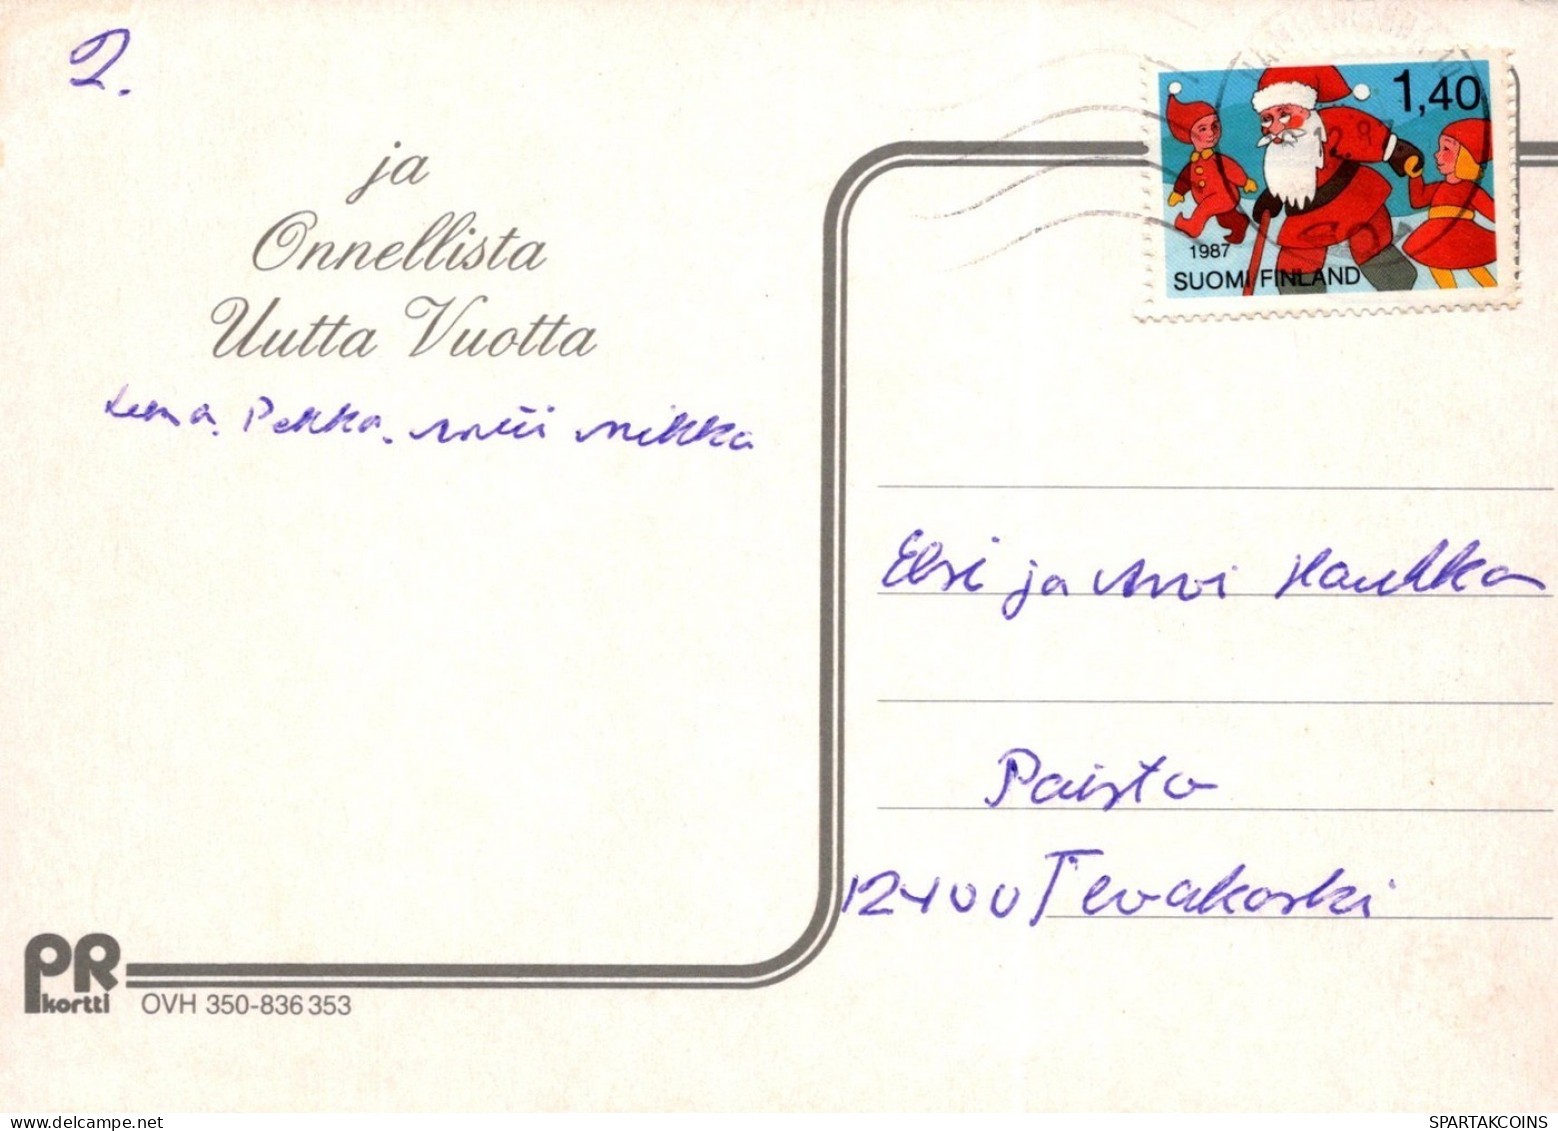 2.
ja
Onnellista
Uutta Vuotta
Leena, Pekka, Mikka
1,40
1987
SUOMI FINLAND
Elsi ja Arvi Haukka
Paisto
12400 Tervakoski
PR
kortti
OVH 350-836 353
SPARTAKCOINS